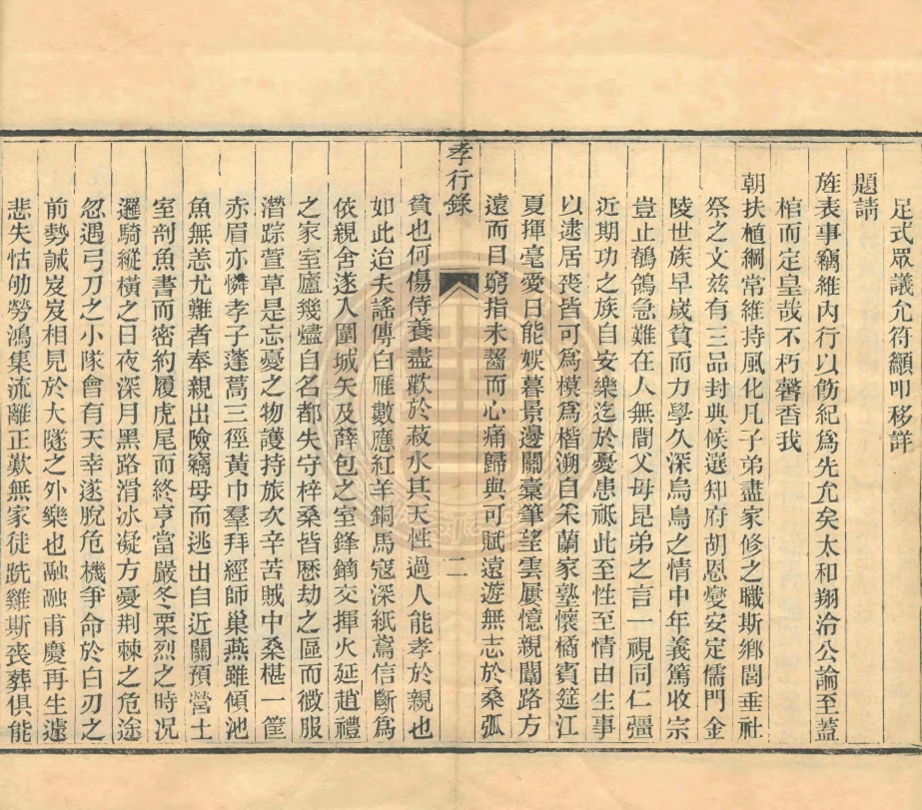 足式眾議允符籲叩移詳
題請
旌表事竊維內行以飭紀爲先允矣太和翔洽公論至蓋
棺而定皇哉不朽馨香我
朝扶植綱常維持風化凡子弟盡家修之職斯鄉閭垂社
祭之文茲有三品封典候選知府胡恩燮安定儒門金
陵世族早歲貧而力學久深烏鳥之情中年義篤收宗
豈止鶺鴒急難在人無間父母昆弟之言一視同仁彊
近期功之族自安樂迄於憂患祇此至性至情由生事
以逮居喪皆可爲模爲楷溯自采蘭家塾懷橘賓筵江
夏揮毫愛日能娛暮景邊關橐筆望雲屢憶親闈路方
遠而目窮指未齧而心痛歸與可賦遠遊無志於桑弧
孝行錄
二
貧也何傷侍養盡歡於菽水其天性過人能孝於親也
如此迨夫謠傳白雁數應紅羊銅馬寇深紙鳶信斷爲
依親舍遂入圍城矢及薛包之室鋒鏑交揮火延趙禮
之家室廬幾燼自名都失守梓桑皆歷劫之區而微服
潛踪萱草是忘憂之物護持旅次辛苦賊中桑椹一筐
赤眉亦憐孝子蓬蒿三徑黃巾羣拜經師巢燕雖傾池
魚無恙尤難者奉親出險竊母而逃出自近關預營土
室剖魚書而密約履虎尾而終亨當嚴冬栗烈之時況
邏騎縱橫之日夜深月黑路滑冰凝方憂荆棘之危途
忽遇弓刀之小隊會有天幸遂脫危機爭命於白刃之
前勢誠岌岌相見於大隧之外樂也融融甫慶再生遽
悲失怙劬勞鴻集流離正歎無家徒跣雞斯喪葬俱能